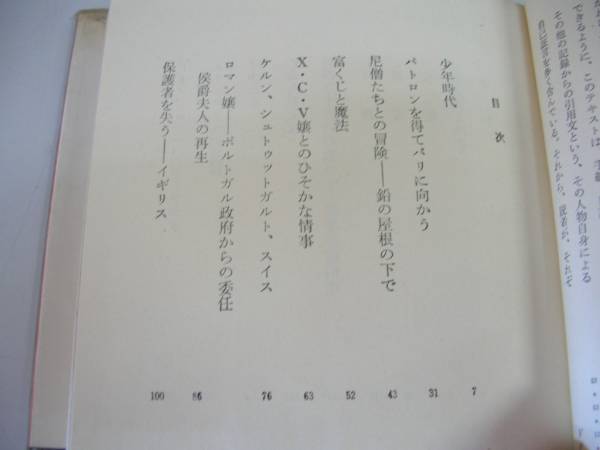 だという
できるように、このテキストは、手紙
その他の記録からの引用文という、その人物自身による
自己証言を多く含んでいる。それから、読者が、それぞ
目次
少年時代 7
パトロンを得てパリに向かう 31
尼僧たちとの冒険――鉛の屋根の下で 43
富くじと魔法 52
X・C・V嬢とのひそかな情事 63
ケルン、シュトゥットガルト、スイス 76
ロマン嬢――ポルトガル政府からの委任
侯爵夫人の再生 86
保護者を失う――イギリス 100